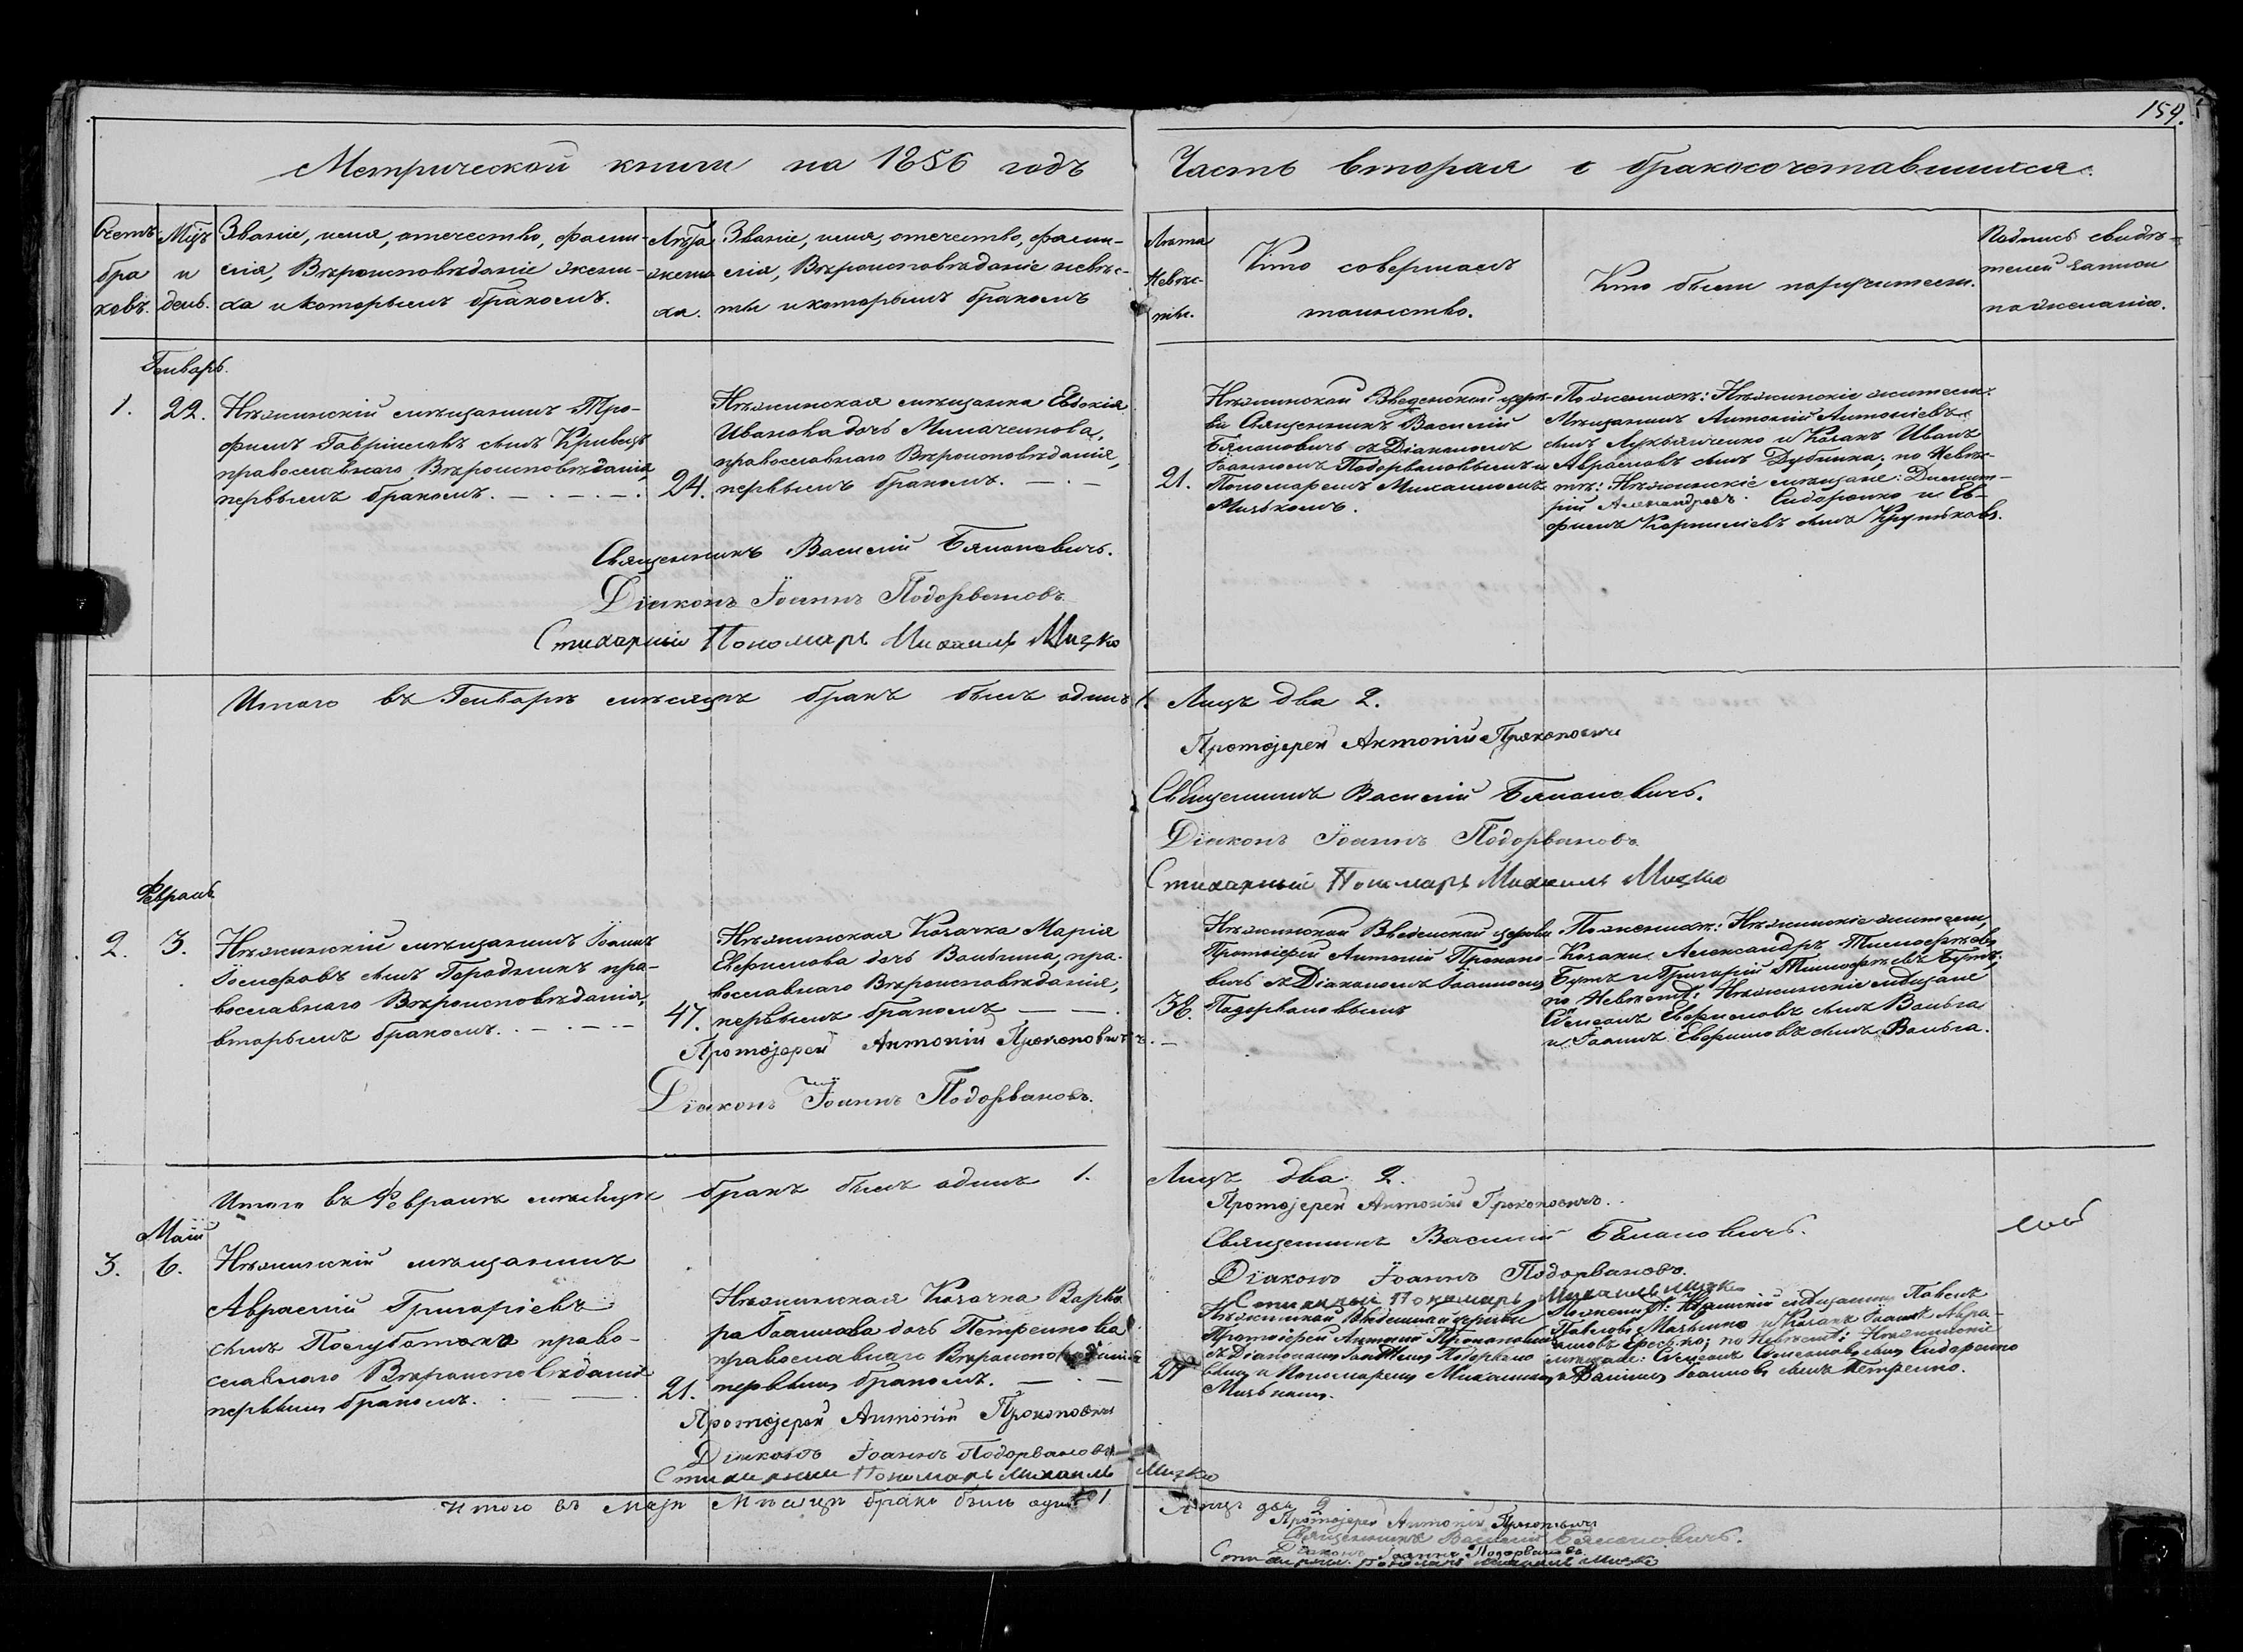 159.
Метрической книги на 1856 годъ
Часть вторая о бракосочетавшихся.
Счетъ браковъ.
Мѣц. и день.
Званіе, имя, отечество, фами-
лія, Вѣроисповѣданіе жени-
ха и которымъ бракомъ.
Лѣта жениха.
Званіе, имя, отечество, фами-
лія, Вѣроисповѣданіе невѣс-
ты и которымъ бракомъ
Лѣта Невѣс-
ты.
Кто совершалъ
таинство.
Кто были поручители.
Подпись свидѣ-
телей записи
по желанію.
Генварь.
1.
22.
Нѣжинскій мѣщанинъ Тро-
фимъ Гавріиловъ сынъ Кривецъ
православнаго Вѣроисповѣданія,
первымъ бракомъ.
24.
Нѣжинская мѣщанка Евдокія
Иванова дочь
православнаго Вѣроисповѣданія,
первымъ бракомъ.
21.
Нѣжинской Введенской церк-
ви Священникъ Василій
Бѣлановичъ съ Діакономъ
Іоанномъ Подорвановымъ и
Пономаремъ Михаиломъ
Мизькомъ.
По женихѣ: Нѣжинскіе жители:
Мѣщанинъ Антоній Антоніевъ
сынъ Лукьянченко и Козакъ Иванъ
Авраамовъ сынъ Дубина; по Невѣс-
тѣ: Нѣжинскіе мѣщане: Димит-
рій Александровъ Сидоренко и Ев-
фимъ Корниліевъ сынъ
Священникъ Василій Бѣлановичъ.
Діаконъ Іоаннъ Подорвановъ
Стихарный Пономарь Михаилъ Мизко
Итого въ Генварѣ мѣсяцѣ бракъ былъ одинъ 1.
Лицъ два 2.
Протоіерей Антоній Прокоповичъ
Священникъ Василій Бѣлановичъ.
Діаконъ Іоаннъ Подорвановъ
Стихарный Пономарь Михаилъ Мизко
Февраль
2.
3.
Нѣжинскій мѣщанинъ Іоаннъ
Іосифовъ сынъ Городникъ пра-
вославнаго Вѣроисповѣданія,
вторымъ бракомъ.
47.
Нѣжинская Козачка Марія
Евфимова дочь Волынина, пра-
вославнаго Вѣроисповѣданія,
первымъ бракомъ
38.
Нѣжинской Введенской церкви
Протоіерей Антоній Прокопо-
вичъ съ Діакономъ Іоанномъ
Подорвановымъ
По женихѣ: Нѣжинскіе жители,
Козаки Александръ Тимофѣевъ
Бутъ и Григорій Тимофѣевъ Бутъ;
по Невѣстѣ: Нѣжинскіе мѣщане
Симеонъ Евфимовъ сынъ
и Іоаннъ Евфимовъ сынъ
Протоіерей Антоній Прокоповичъ.
Діаконъ Іоаннъ Подорвановъ.
Итого въ Февралѣ мѣсяцѣ бракъ былъ одинъ 1.
Лицъ два 2.
Протоіерей Антоній Прокоповичъ.
Священникъ Василій Бѣлановичъ.
Діаконъ Іоаннъ Подорвановъ.
Стихарный Пономарь Михаилъ Мизко
Май
3.
6.
Нѣжинскій мѣщанинъ
Аврамій Григоріевъ
сынъ Полуботокъ право-
славнаго Вѣроисповѣданія
первымъ бракомъ.
21.
Нѣжинская Козачка Варва-
ра Іоаннова дочь Петренкова
православнаго Вѣроисповѣданія
первымъ бракомъ.
Нѣжинской Введенской церкви
Протоіерей Антоній Прокоповичъ
съ Діакономъ Іоанномъ Подорвано-
вымъ и Пономаремъ Михаиломъ
Мизькомъ.
По женихѣ: мѣщанинъ Павелъ
Павловъ и Козакъ Іоаннъ Авра-
амовъ по Невѣстѣ: Нѣжинскіе
мѣщане: Симеонъ Симеоновъ сынъ Сидоренко
и Даніилъ Іоанновъ сынъ Петренко.
Протоіерей Антоній Прокоповичъ
Діаконъ Іоаннъ Подорвановъ
Стихарный Пономарь Михаилъ Мизко
Итого въ Маѣ Мѣсяцѣ бракъ былъ одинъ 1
Лицъ два 2
Протоіерей Антоній Прокоповичъ
Священникъ Василій Бѣлановичъ.
Діаконъ Іоаннъ Подорвановъ
Стихарный Пономарь Михаилъ Мизко